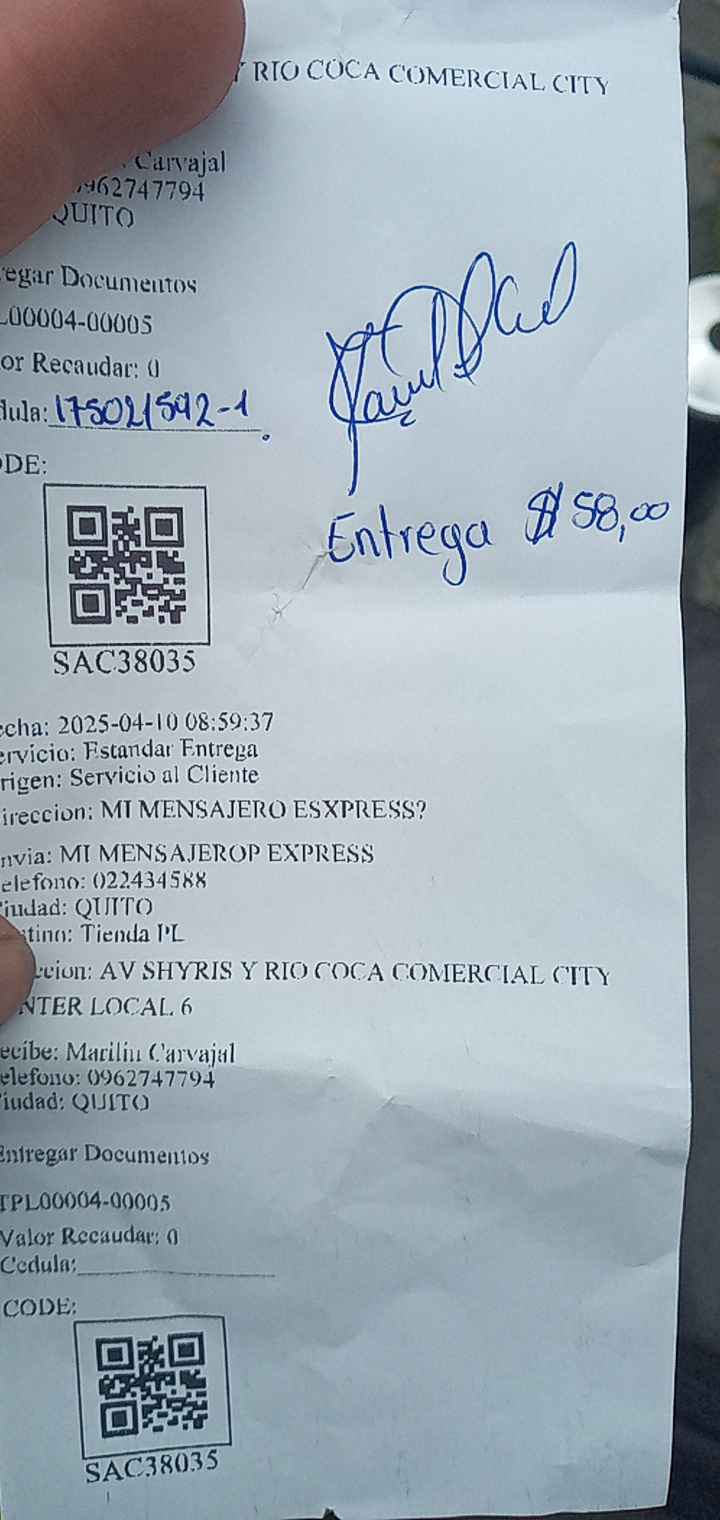 Y RIO COCA COMERCIAL CITY
Carvajal
0962747794
QUITO
egar Documentos
L00004-00005
or Recaudar: 0
dula: 175021592-1
ODE:
Entrega $ 58,00
SAC38035
echa: 2025-04-10 08:59:37
ervicio: Estandar Entrega
rigen: Servicio al Cliente
ireccion: MI MENSAJERO ESXPRESS?
nvia: MI MENSAJEROP EXPRESS
elefono: 022434588
iudad: QUITO
tino: Tienda PL
ccion: AV SHYRIS Y RIO COCA COMERCIAL CITY
NTER LOCAL 6
ecibe: Marilin Carvajal
elefono: 0962747794
iudad: QUITO
Entregar Documentos
TPL00004-00005
Valor Recaudar: 0
Cedula:
CODE:
SAC38035